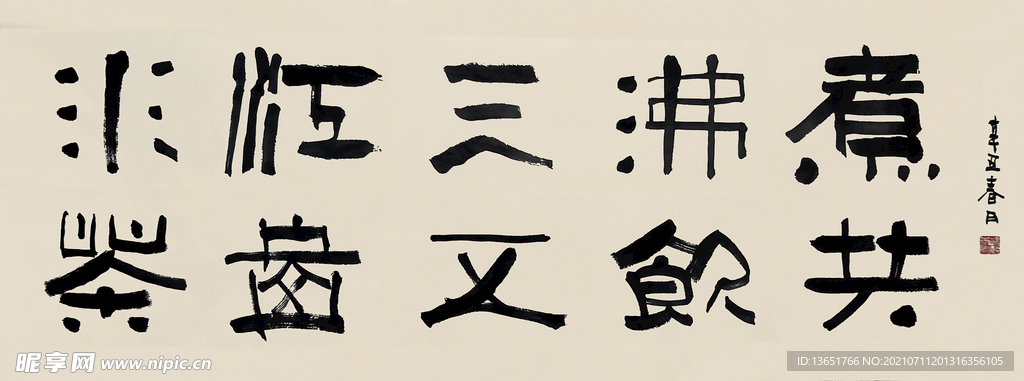 煮沸三江水
共飲五岳茶
辛丑春月
昵享网 www.nipic.cn
ID:13651766 NO:20210711201316356105